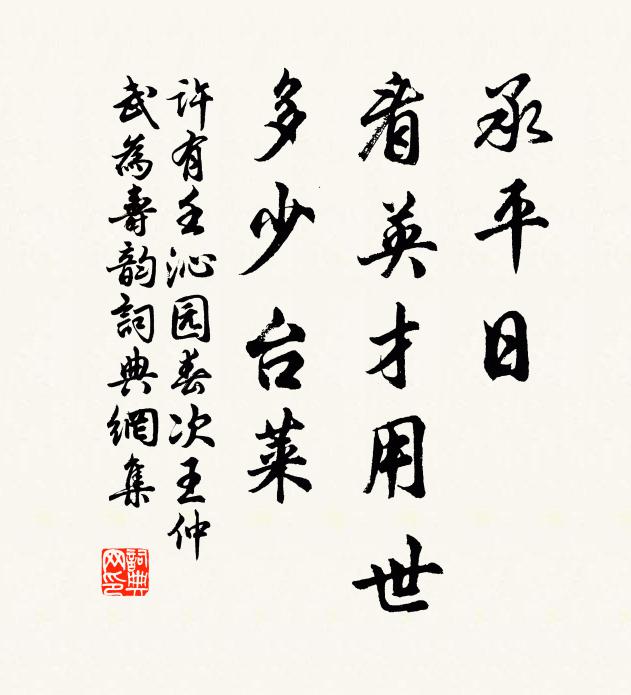 承平日
看英才用世
多少台莱
许有壬沁园春次王仲
武為壽韵詞典網集
詞典
网印